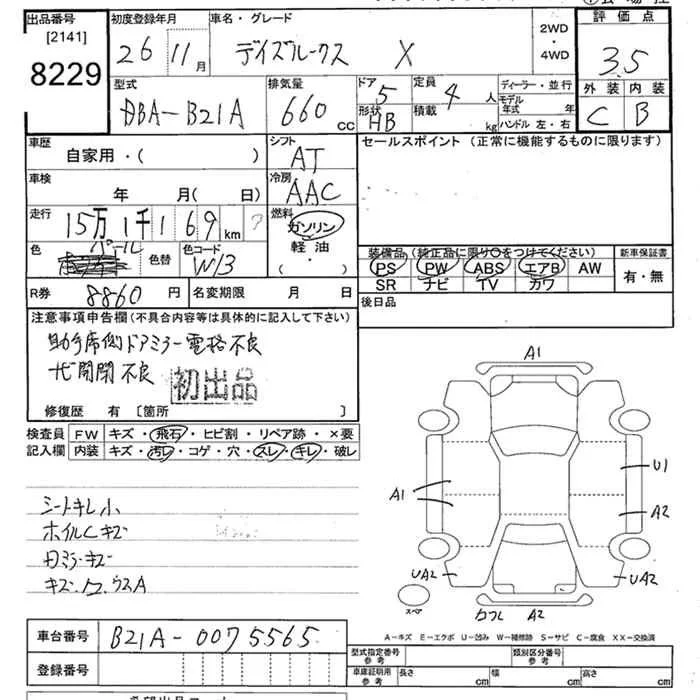 出品番号
[2141]
8229
初度登録年月
26 11月
車名・グレード
デイズルークス X
2WD
・
4WD
評価点
3.5
外装 内装
C B
型式
DBA-B21A
排気量
660 CC
ドア 5
形状 HB
定員 4 人
積載 kg
ディーラー・並行
モデル年式 年
ハンドル 左・右
車歴
自家用・( )
シフト
AT
セールスポイント (正常に機能するものに限ります)
車検
年 月( 日)
冷房
AAC
走行
15万1千169 km ?
燃料
ガソリン
軽油
( ・ )
色
パール
色替
色コード
W13
装備品 (純正品に限り○をつけてください)
PS PW ABS エアB AW
SR ナビ TV カワ
新車保証書
有・無
R券 8860 円
名変期限 月 日
後日品
注意事項申告欄(不具合内容等は具体的に記入して下さい)
助手席側ドアミラー電格不良
初出品
修復歴 有 [箇所 ]
検査員
記入欄
FW キズ・飛石・ヒビ割・リペア跡・×要
内装 キズ・汚レ・コゲ・穴・スレ・キレ・破レ
シートキレ小
ホイルCキズ
キズ・ウスA
A1
A1
U1
A2
UA2
UA2
スペア
A2
A-キズ E-エクボ U-凹み W-補修跡 S-サビ C-腐食 XX-交換済
車台番号
B21A-0075565
登録番号
型式指定番号
参考
類別区分番号
参考
車庫証明用
参考
長さ cm
幅 cm
高さ cm